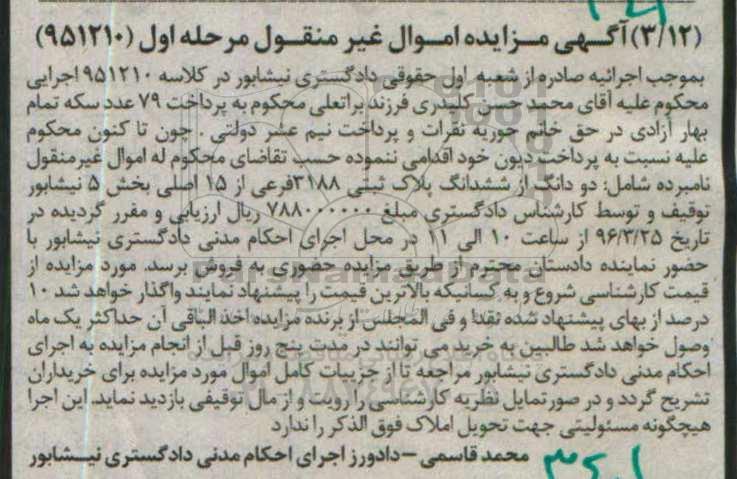 (۳/۱۲) آگهی مزایده اموال غیر منقول مرحله اول (۹۵۱۲۱۰)
بموجب اجرائیه صادره از شعبه اول حقوقی دادگستری نیشابور در کلاسه ۹۵۱۲۱۰ اجرایی
محکوم علیه آقای محمد حسن کلیدری فرزند براتعلی محکوم به پرداخت ۷۹ عدد سکه تمام
بهار آزادی در حق خانم حوریه نقرات و پرداخت نیم عشر دولتی . چون تا کنون محکوم
علیه نسبت به پرداخت دیون خود اقدامی ننموده حسب تقاضای محکوم له اموال غیرمنقول
نامبرده شامل: دو دانگ از ششدانگ پلاک ثبتی ۳۱۸۸فرعی از ۱۵ اصلی بخش ۵ نیشابور
توقیف و توسط کارشناس دادگستری مبلغ ۷۸۸۰۰۰۰۰۰ ریال ارزیابی و مقرر گردیده در
تاریخ ۹۶/۳/۲۵ از ساعت ۱۰ الی ۱۱ در محل اجرای احکام مدنی دادگستری نیشابور با
حضور نماینده دادستان محترم از طریق مزایده حضوری به فروش برسد. مورد مزایده از
قیمت کارشناسی شروع و به کسانیکه بالاترین قیمت را پیشنهاد نمایند واگذار خواهد شد ۱۰
درصد از بهای پیشنهاد شده نقدا و فی المجلس از برنده مزایده اخذ الباقی آن حداکثر یک ماه
وصول خواهد شد طالبین به خرید می توانند در مدت پنج روز قبل از انجام مزایده به اجرای
احکام مدنی دادگستری نیشابور مراجعه تا از جزییات کامل اموال مورد مزایده برای خریداران
تشریح گردد و در صورتمایل نظریه کارشناسی را رویت و از مال توقیفی بازدید نماید. این اجرا
هیچگونه مسئولیتی جهت تحویل املاک فوق الذکر را ندارد
محمد قاسمی – دادورز اجرای احکام مدنی دادگستری نیشابور